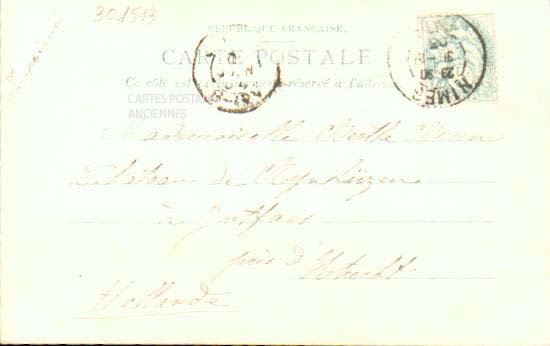 301513
RÉPUBLIQUE FRANÇAISE
CARTE POSTALE
Ce côté est exclusivement réservé à l'adresse
CARTES POSTALES
ANCIENNES
NIMES
Mademoiselle Berthe
Château de Rynhuizen
à Jutfaas
près d'Utrecht
Hollande